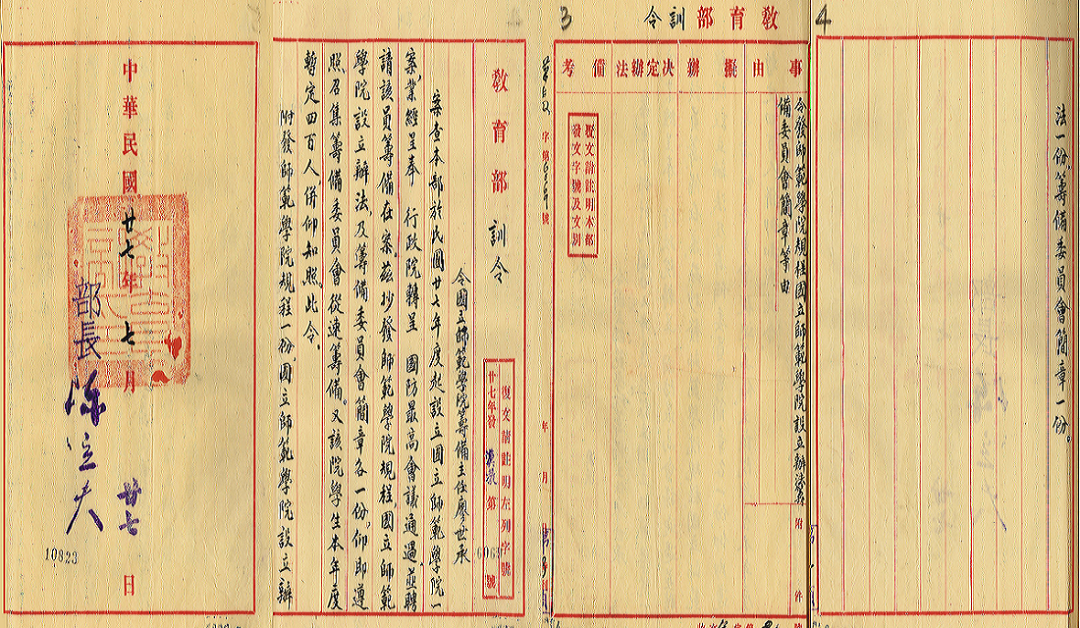 3
教育部訓令
事由
擬辦
決定辦法
備考
令發師範學院規程國立師範學院設立辦法籌
備委員會簡章等由
附件
復文請註明本部
發文字號及文別
字第6069號
年
月
教育部訓令
復文請註明左列字號
廿七年發漢教第6069號
令國立師範學院籌備主任廖世承
案查本部於民國廿七年度起設立國立師範學院一
案，業經呈奉 行政院轉呈 國防最高會議通過，並聘
請該員籌備在案。茲抄發師範學院規程，國立師範
學院設立辦法，及籌備委員會簡章各一份，仰即遵
照召集籌備委員會從速籌備。又該院學生本年度
暫定四百人併仰知照。此令。
附發師範學院規程一份，國立師範學院設立辦
4
法一份，籌備委員會簡章一份。
中華民國廿七年七月廿七日
部長陳立夫
10823